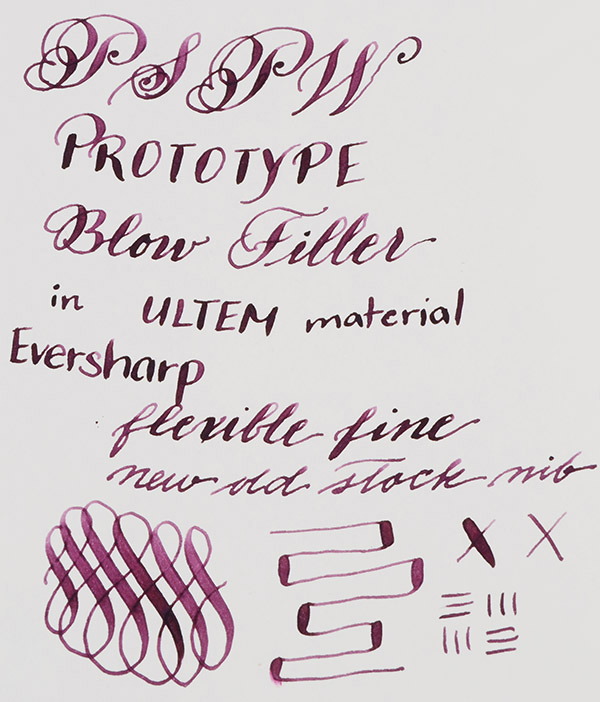 PSPW
PROTOTYPE
Blow Filler
in ULTEM material
Eversharp
flexible fine
new old stock nib
X X